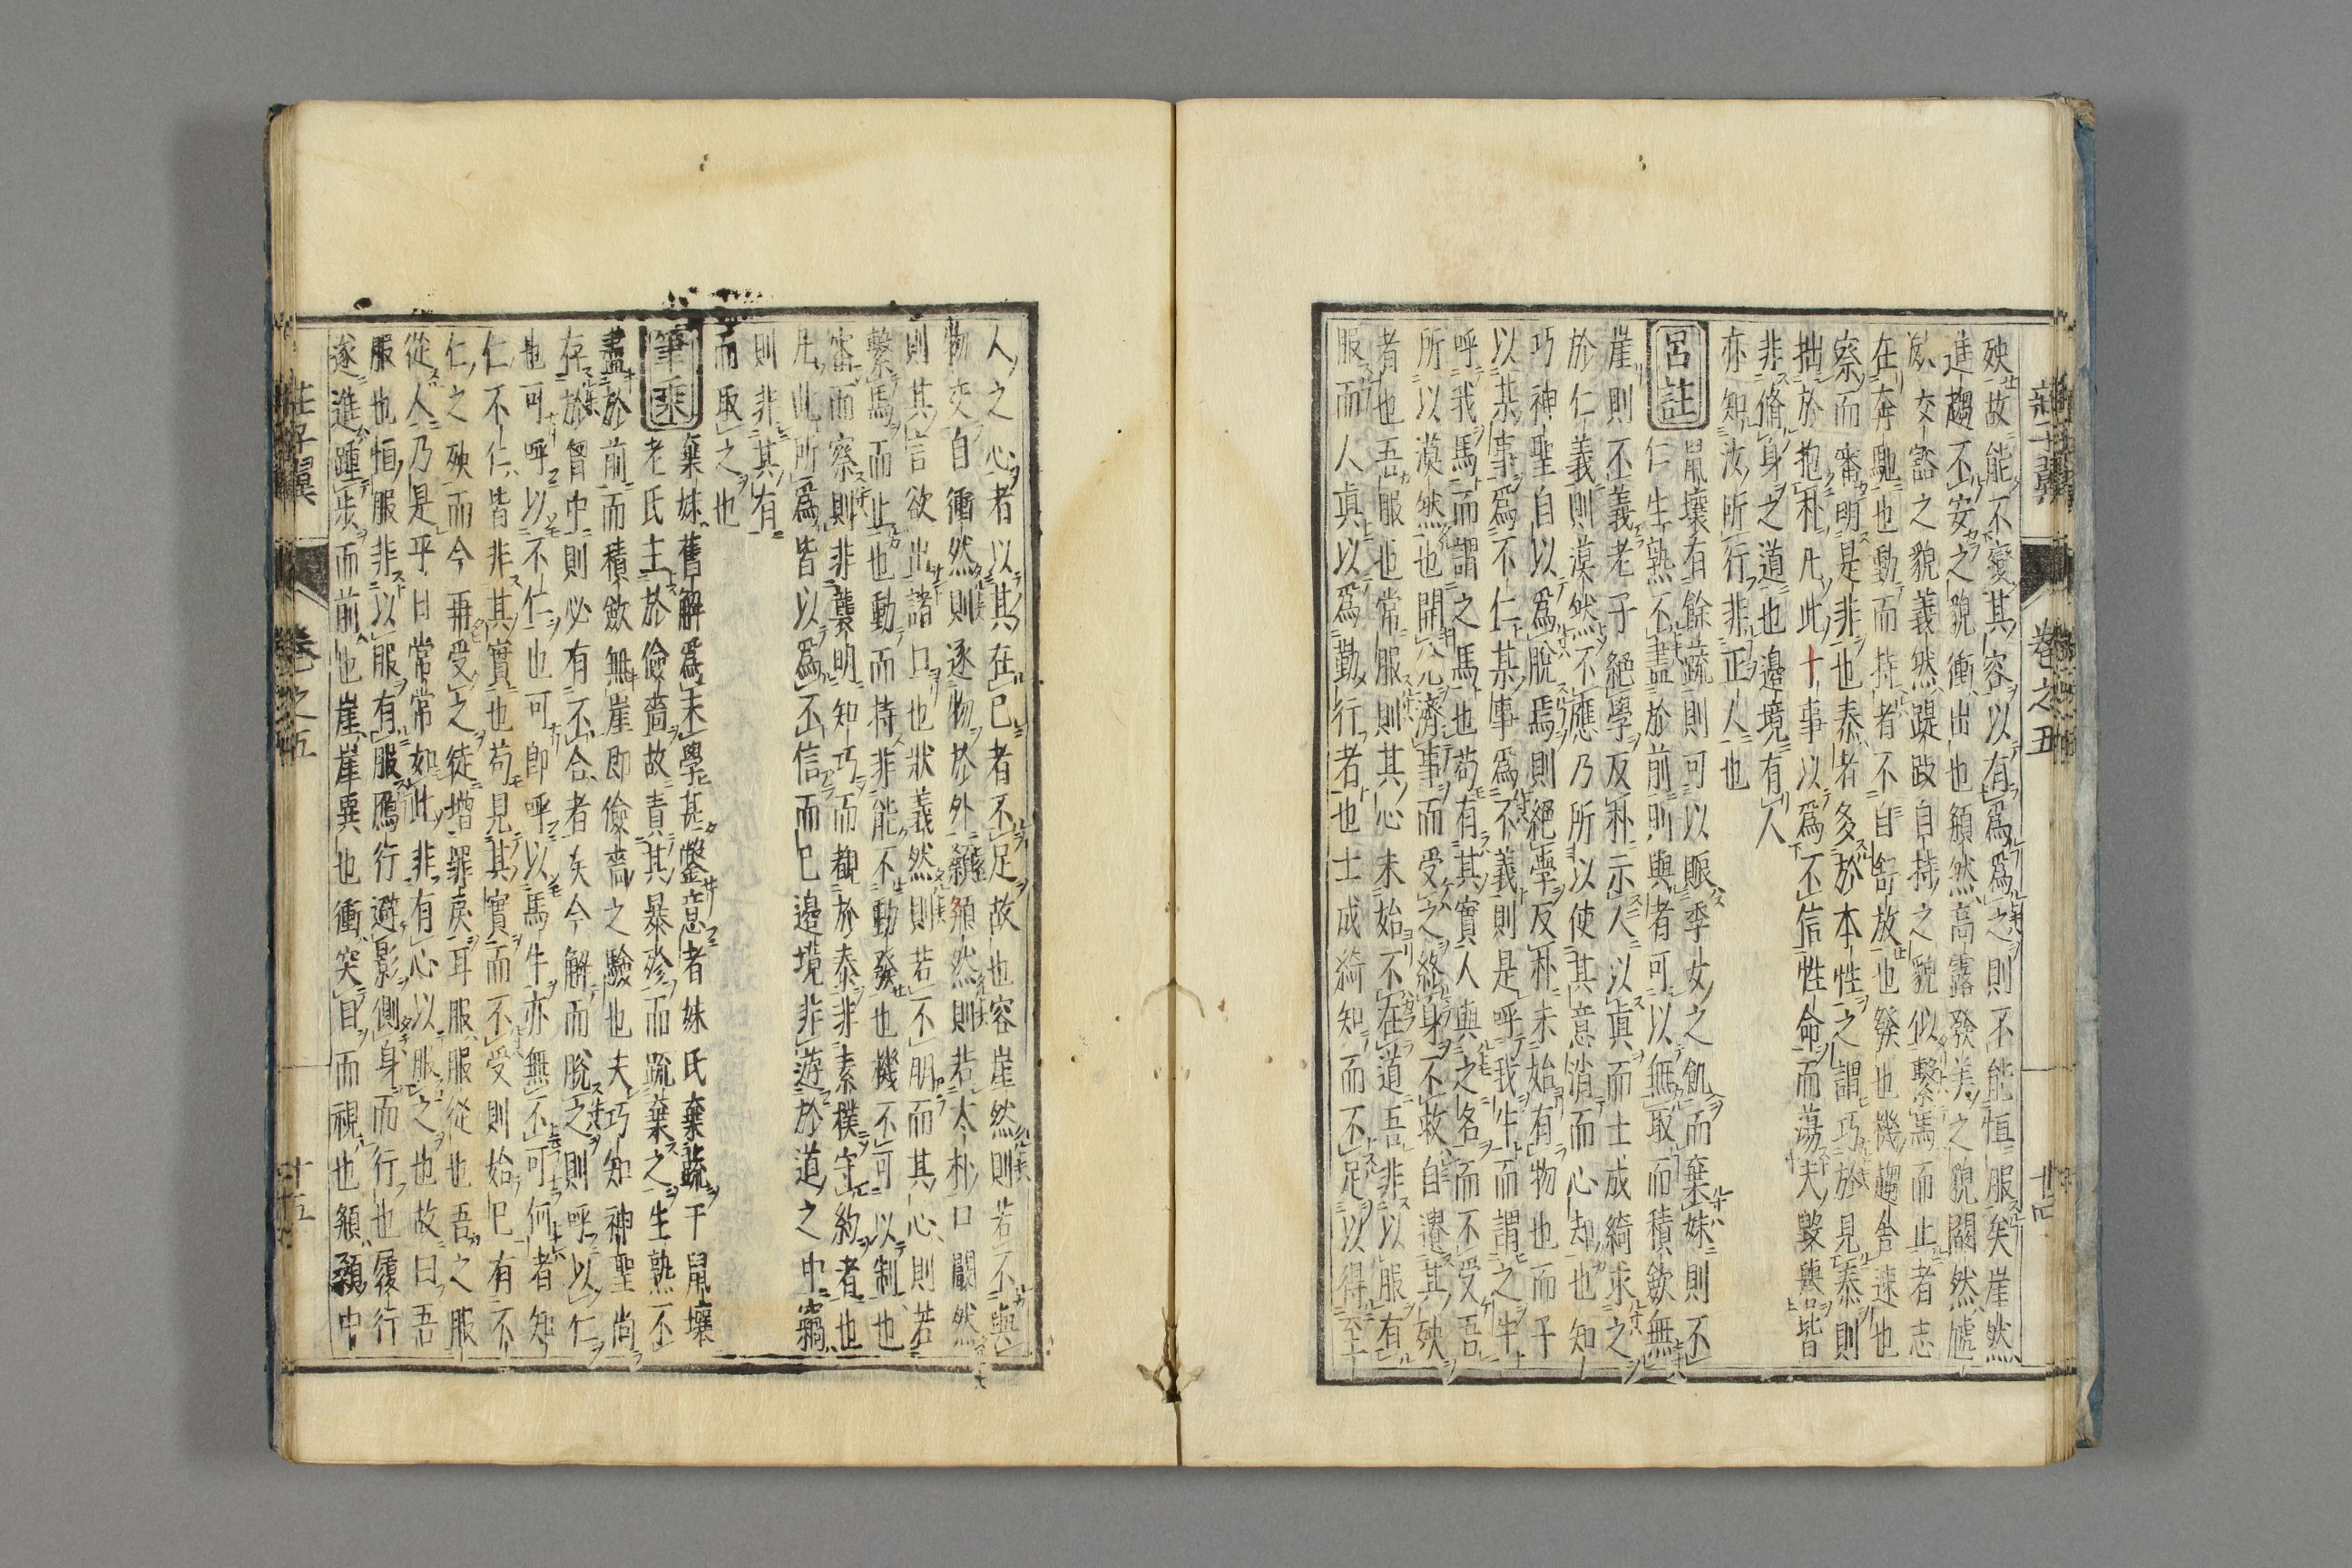 殃故能不變其容以有爲爲之則不能恒服矣崖然
進趨不安之貌衝出也頯然高露發美之貌闞然虓
欲交豁之貌義然踶跂自持之貌似繫馬而止者志
在奔馳也動而持者不自舒放也發也機趨舍速也
察而審明是非也泰者多於本性之謂巧於見泰則
拙於抱朴凡此十事以爲不信性命而蕩夫毀譽皆
非脩身之道也邊境有人
亦如汝所行非正人也
呂註
鼠壤有餘蔬則可以賑季女之飢而棄妹則不
仁生熟不盡於前則與者可以無取而積歛無
崖則不義老子絕學反朴示人以眞而士成綺求之
於仁義則漠然不應乃所以使其意消而心却也知
巧神聖自以爲脫焉則絕學反朴未始有物也而子
以某事爲不仁某事爲不義則是呼我牛而謂之牛
呼我馬而謂之馬也苟有其實人與之名而不受吾
所以漠然也開穴濟事而受之終身不救自遺其殃
者也吾服也常服則其心未始不在道吾非以服有
服而人眞以爲勤行者也士成綺知而不足以得至
莊子翼 卷之五 十四
人之心者以其在已者不足故也容崖然則若不與
物交自衝然則逐物於外頯然則若太朴口闞然
則其言欲出諸口也狀義然則若不朋而其心則若
繫馬而止也動而持非能不動發也機不可以制也
審而察則非襲明知巧而覩於泰非素樸守約者也
凡此所爲皆以爲不信而已邊境非游於道之中竊
則非其有
而取之也
筆乘
棄妹舊解爲末學甚鑿意者妹氏棄蔬于鼠壤
老氏主於儉嗇故責其暴殄而疏棄之生熟不
盡於前而積歛無崖即儉嗇之驗也夫巧知神聖尚
存於胷中則必有不合者矣今解而脫之則呼以仁
也可呼以不仁也可即呼以馬牛亦無不可何者知
仁不仁皆非其實也苟見其實而不受則始已有不
仁之殃而今再受之徒增罪戾耳服服從也吾之服
從人乃是平日常常如此非有心以服之也故曰吾
服也恒服非以服有服鴈行避影側身而行也履行
遂進踵步而前也崖崖異也衝突目而視也頯頯中
莊子翼 卷之五 十五